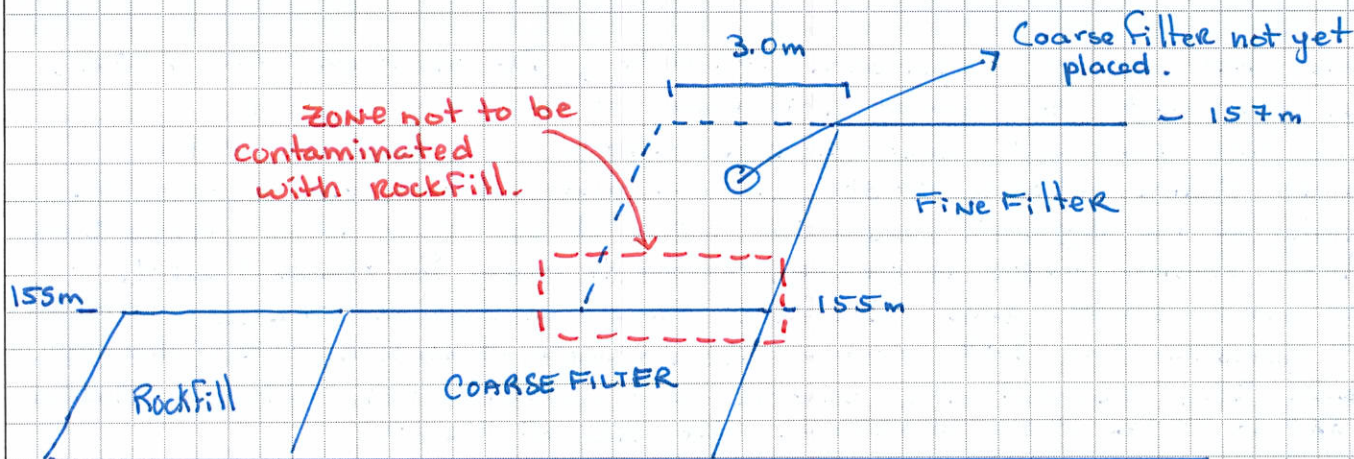 3.0m
Coarse filter not yet
placed.
ZONE not to be
contaminated
with Rockfill.
157m
FiNe FilteR
155m
155m
Rockfill
COARSE FILTER